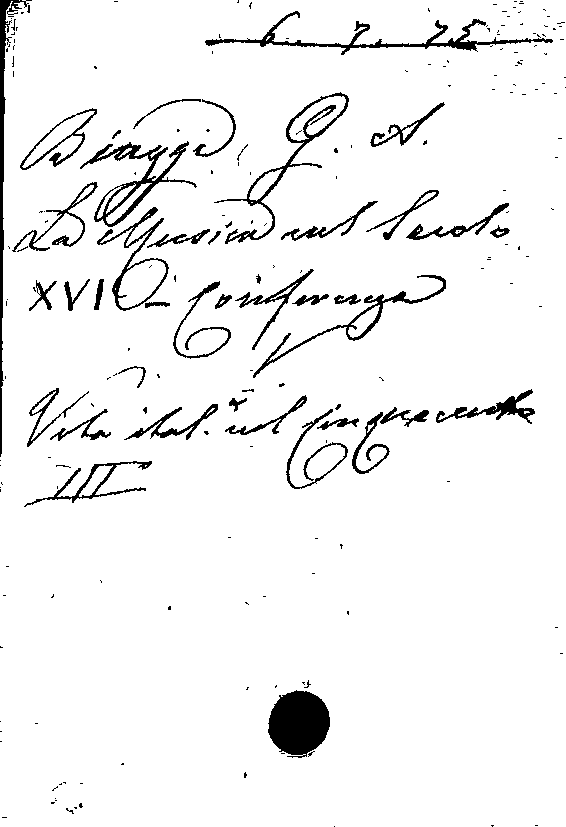 6. 7. 75
Biaggi, G. A.
La Musica nel Secolo
XVI - Conferenza
Vita ital. nel Cinquecento
III